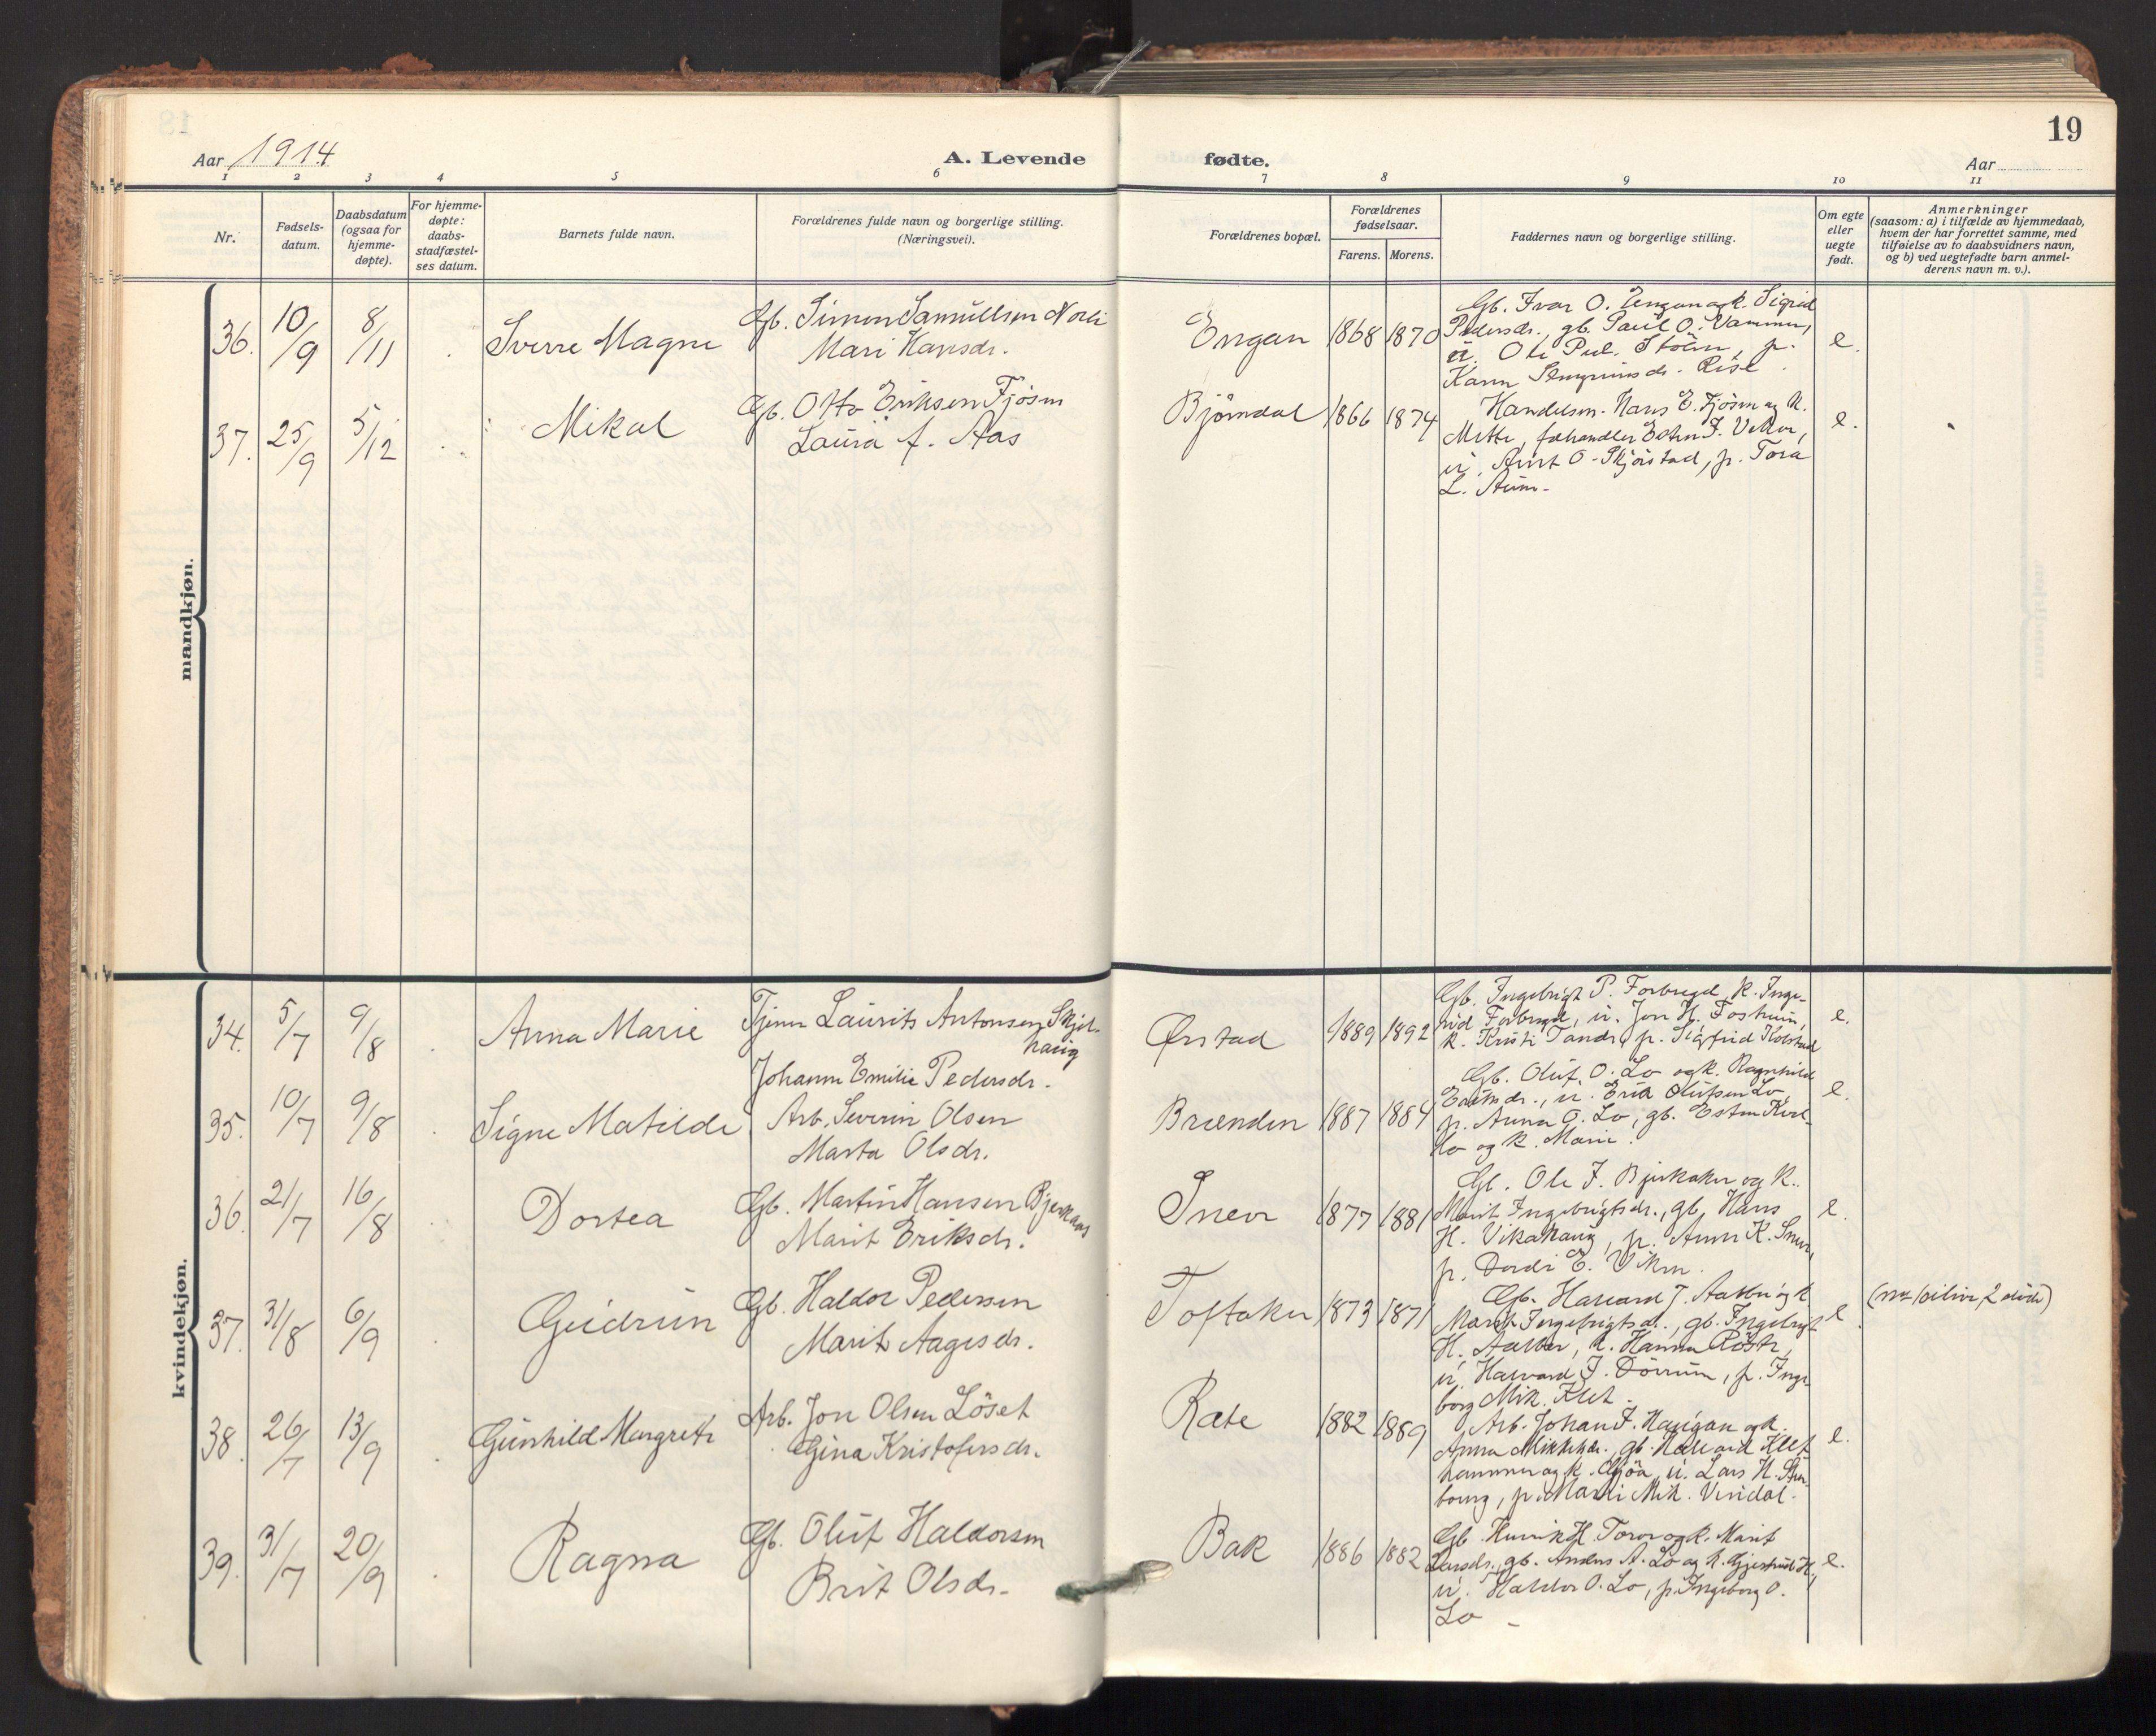 19
Aar 1914
A. Levende
fødte.
Aar
1 2 3 4 5 6 7 8 9 10 11
Nr.
Fødsels-
datum.
Daabsdatum
(ogsaa for
hjemme-
døpte).
For hjemme-
døpte:
daabs-
stadfæstel-
ses datum.
Barnets fulde navn.
Forældrenes fulde navn og borgerlige stilling.
(Næringsvei).
Forældrenes bopæl.
Forældrenes
fødselsaar.
Farens. Morens.
Faddernes navn og borgerlige stilling.
Om egte
eller
uegte
født.
Anmerkninger
(saasom: a) i tilfælde av hjemmedaab,
hvem der har forrettet samme, med
tilføielse av to daabsvidners navn,
og b) ved uegtefødte barn anmel-
derens navn m. v.).
mandkjøn.
36. 10/9 8/11 Sverre Magne
Gb. Simon Samuelsen Norli
Mari Hansdr.
Engan 1868 1870
Gb. Ivar O. Engan og k. Sigrid
Pedersdr., gb. Paul O.
u. Ole Stöen, p.
Karen Rise.
e.
37. 25/9 5/12 Mikal
Gb. Otto Eriksen Fjösne
Laura f. Aas
Björndal 1866 1874
Handelsm. Hans E. Fjösne og k.
Mette, fehandler Esten J.
u. Arnt O. Skjörstad, p. Tora
L. Aune.
e.
kvindekjøn.
34. 5/7 9/8 Anna Marie
Tjener Laurits Antonsen Skjel-
haug
Johanne Emilie Pedersdr.
Örstad 1889 1892
Gb. Ingebrigt P. Forbregd, k. Inge-
rid Forbregd, u. Jon H.
k. Kristi p. Sigfrid
e.
35. 10/7 9/8 Signe Matilde
Arb. Severin Olsen
Marta Olsdr.
Brænden 1887 1884
Gb. Oluf O. Lo og k. Ragnhild
Eriksdr., u. Erik Olufsen Lo,
p. Anna O. Lo, gb. Esten
og k. Marie.
e.
36. 21/7 16/8 Dortea
Gb. Martin Hansen Bjerkaas
Marit Eriksdr.
Sneve 1877 1881
Gb. Ole J. Bjerkaker og k.
Marit Ingebrigtsdr., gb. Hans
H. Vikahaug, p. Anne K. Sneve,
p. Dordi E. Viken.
e.
37. 31/8 6/9 Gudrun
Gb. Haldor Pedersen
Marit Aagesdr.
Toftaker 1873 1871
Gb. Halvard J. og k.
Marit Ingebrigtsdr., gb. Ingebrigt
H. k. Hanna
u. Halvard J. Dörrum, p. Inge-
borg Mik. Klet.
e.
38. 26/7 13/9 Gunhild Margrete
Arb. Jon Olsen Löset
Gina Kristofersdr.
Rate 1882 1889
Arb. Johan J. Haugan og k.
Anna Mikkelsdr., gb. Halvard Klet
hammer og k. Gjöa, u. Lars H.
borg, p. Marli Mik. Vindal.
e.
39. 31/7 20/9 Ragna
Gb. Oluf Haldorsen
Brit Olsdr.
Bak 1886 1882
Gb. Henrik H. Torve og k. Marit
Larsdr., gb. Anders A. Lo og k. Gjertrud H.,
u. Haldor O. Lo, p. Ingeborg O.
Lo
e.